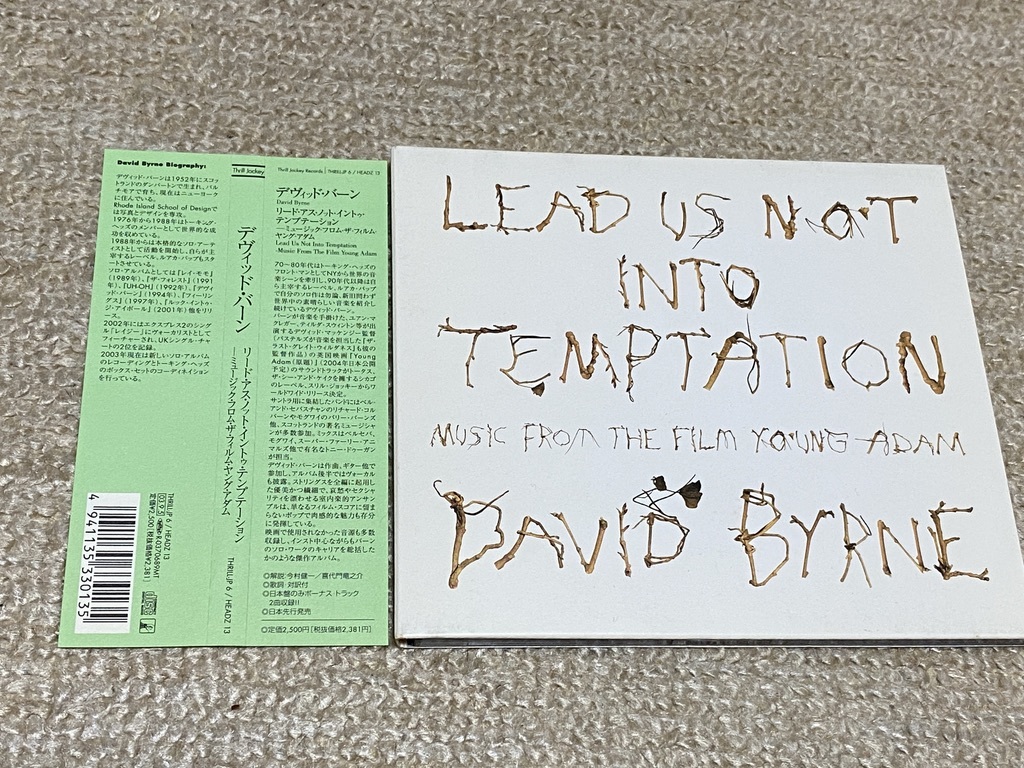 David Byrne Biography:
デヴィッド・バーンは1952年にスコッ
トランドのダンバートンで生まれ、バル
チモアで育ち、現在はニューヨーク
に住んでいる。
Rhode Island School of Designで
は写真とデザインを専攻。
1976年から1988年はトーキング・
ヘッズのメンバーとして世界的な成
功を収めている。
1988年からは本格的なソロ・アーテ
ィストとして活動を開始し、自らが主
宰するレーベル、ルアカ・バップもスタ
ートさせている。
ソロ・アルバムとしては『レイ・モモ』
(1989年)、『ザ・フォレスト』(1991
年)、『UH-OH』(1992年)、『デヴィ
ッド・バーン』(1994年)、『フィーリン
グス』(1997年)、『ルック・イントゥ・
ジ・アイボール』(2001年)他をリリ
ース。
2002年にはエクスプレス2のシング
ル「レイジー」にヴォーカリストとして
フィーチャーされ、UKシングル・チャ
ートの2位を記録。
2003年現在は新しいソロ・アルバム
のレコーディングとトーキング・ヘッズ
のボックス・セットのコーディネイション
を行っている。
THRILLJP 6 / HEADZ 13
定価¥2,500[税抜価格¥2,381]
4 941135 330135
Thrill Jockey
デヴィッド・バーン
リード・アス・ノット・イントゥ・テンプテーション
―ミュージック・フロム・ザ・フィルム・ヤング・アダム
THRILLJP 6 / HEADZ 13
Thrill Jockey Records | THRILLJP 6 / HEADZ 13
デヴィッド・バーン
David Byrne
リード・アス・ノット・イントゥ・
テンプテーション
―ミュージック・フロム・ザ・フィルム・
ヤング・アダム
Lead Us Not Into Temptation
-Music From The Film Young Adam
70〜80年代はトーキング・ヘッズの
フロント・マンとしてNYから世界の音
楽シーンを牽引し、90年代以降は自
ら主宰するレーベル、ルアカ・バップ
で自分のソロ作は勿論、新旧問わず
世界中の素晴らしい音楽を紹介し
続けているデヴィッド・バーン。
バーンが音楽を手掛けた、ユアン・マ
クレガー、ティルダ・スウィントン等が出
演するデヴィッド・マッケンジー監督
(パステルズが音楽を担当した『ザ・
ラスト・グレイト・ウィルダネス』も彼の
監督作品)の英国映画『Young
Adam(原題)』(2004年日本公開
予定)のサウンドトラックがトータス、
ザ・シー・アンド・ケイクを擁するシカゴ
のレーベル、スリル・ジョッキーからワ
ールドワイド・リリース決定。
サントラ用に集結したバンドにはベル・
アンド・セバスチャンのリチャード・コル
バーンやモグワイのバリー・バーンズ
他、スコットランドの著名ミュージシャ
ンが多数参加。ミックスはベルセバ、
モグワイ、スーパー・ファーリー・アニ
マルズ他で有名なトニー・ドゥーガン
が担当。
デヴィッド・バーンは作曲、ギター他で
参加し、アルバム後半ではヴォーカル
も披露。ストリングスを全編に起用し
た優美かつ繊細で、哀愁やセクシャ
リティを漂わせる室内楽的アンサン
ブルは、単なるフィルム・スコアに留ま
らないポップで肉感的な魅力も存分
に発揮している。
映画で使用されなかった音源も多数
収録し、インスト中心ながらもバーン
のソロ・ワークのキャリアを総括した
かのような傑作アルバム。
◎解説:今村健一／喜代門竜之介
◎歌詞・対訳付
◎日本盤のみボーナス・トラック
2曲収録!!
◎日本先行発売
◎定価2,500円[税抜価格2,381円]
LEAD US NOT
INTO
TEMPTATION
MUSIC FROM THE FILM YOUNG ADAM
DAVID BYRNE